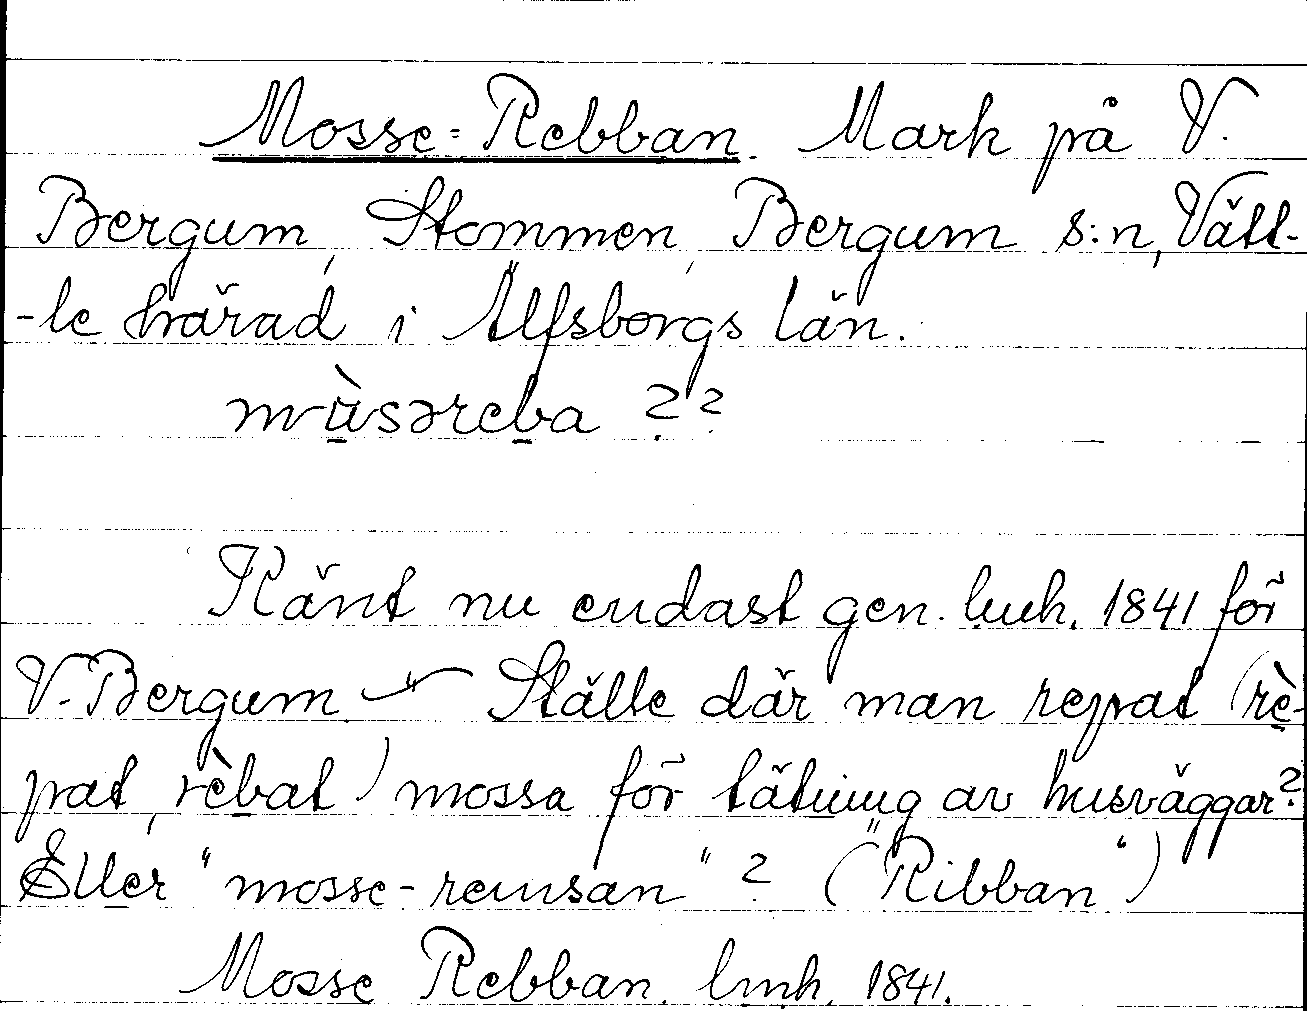 Mosse-Rebban. Mark på V.
Bergum, Stommen, Bergum s:n, Vätt-
-le härad i Älfsborgs län.
mùsəreba ??
Känt nu endast gen. lmh. 1841 för
V. Bergum –"– Ställe där man repat (rè-
pat, rèbat) mossa för tätning av husväggar?
Eller "mosse-remsan"? ("Ribban")
Mosse Rebban. lmh. 1841.